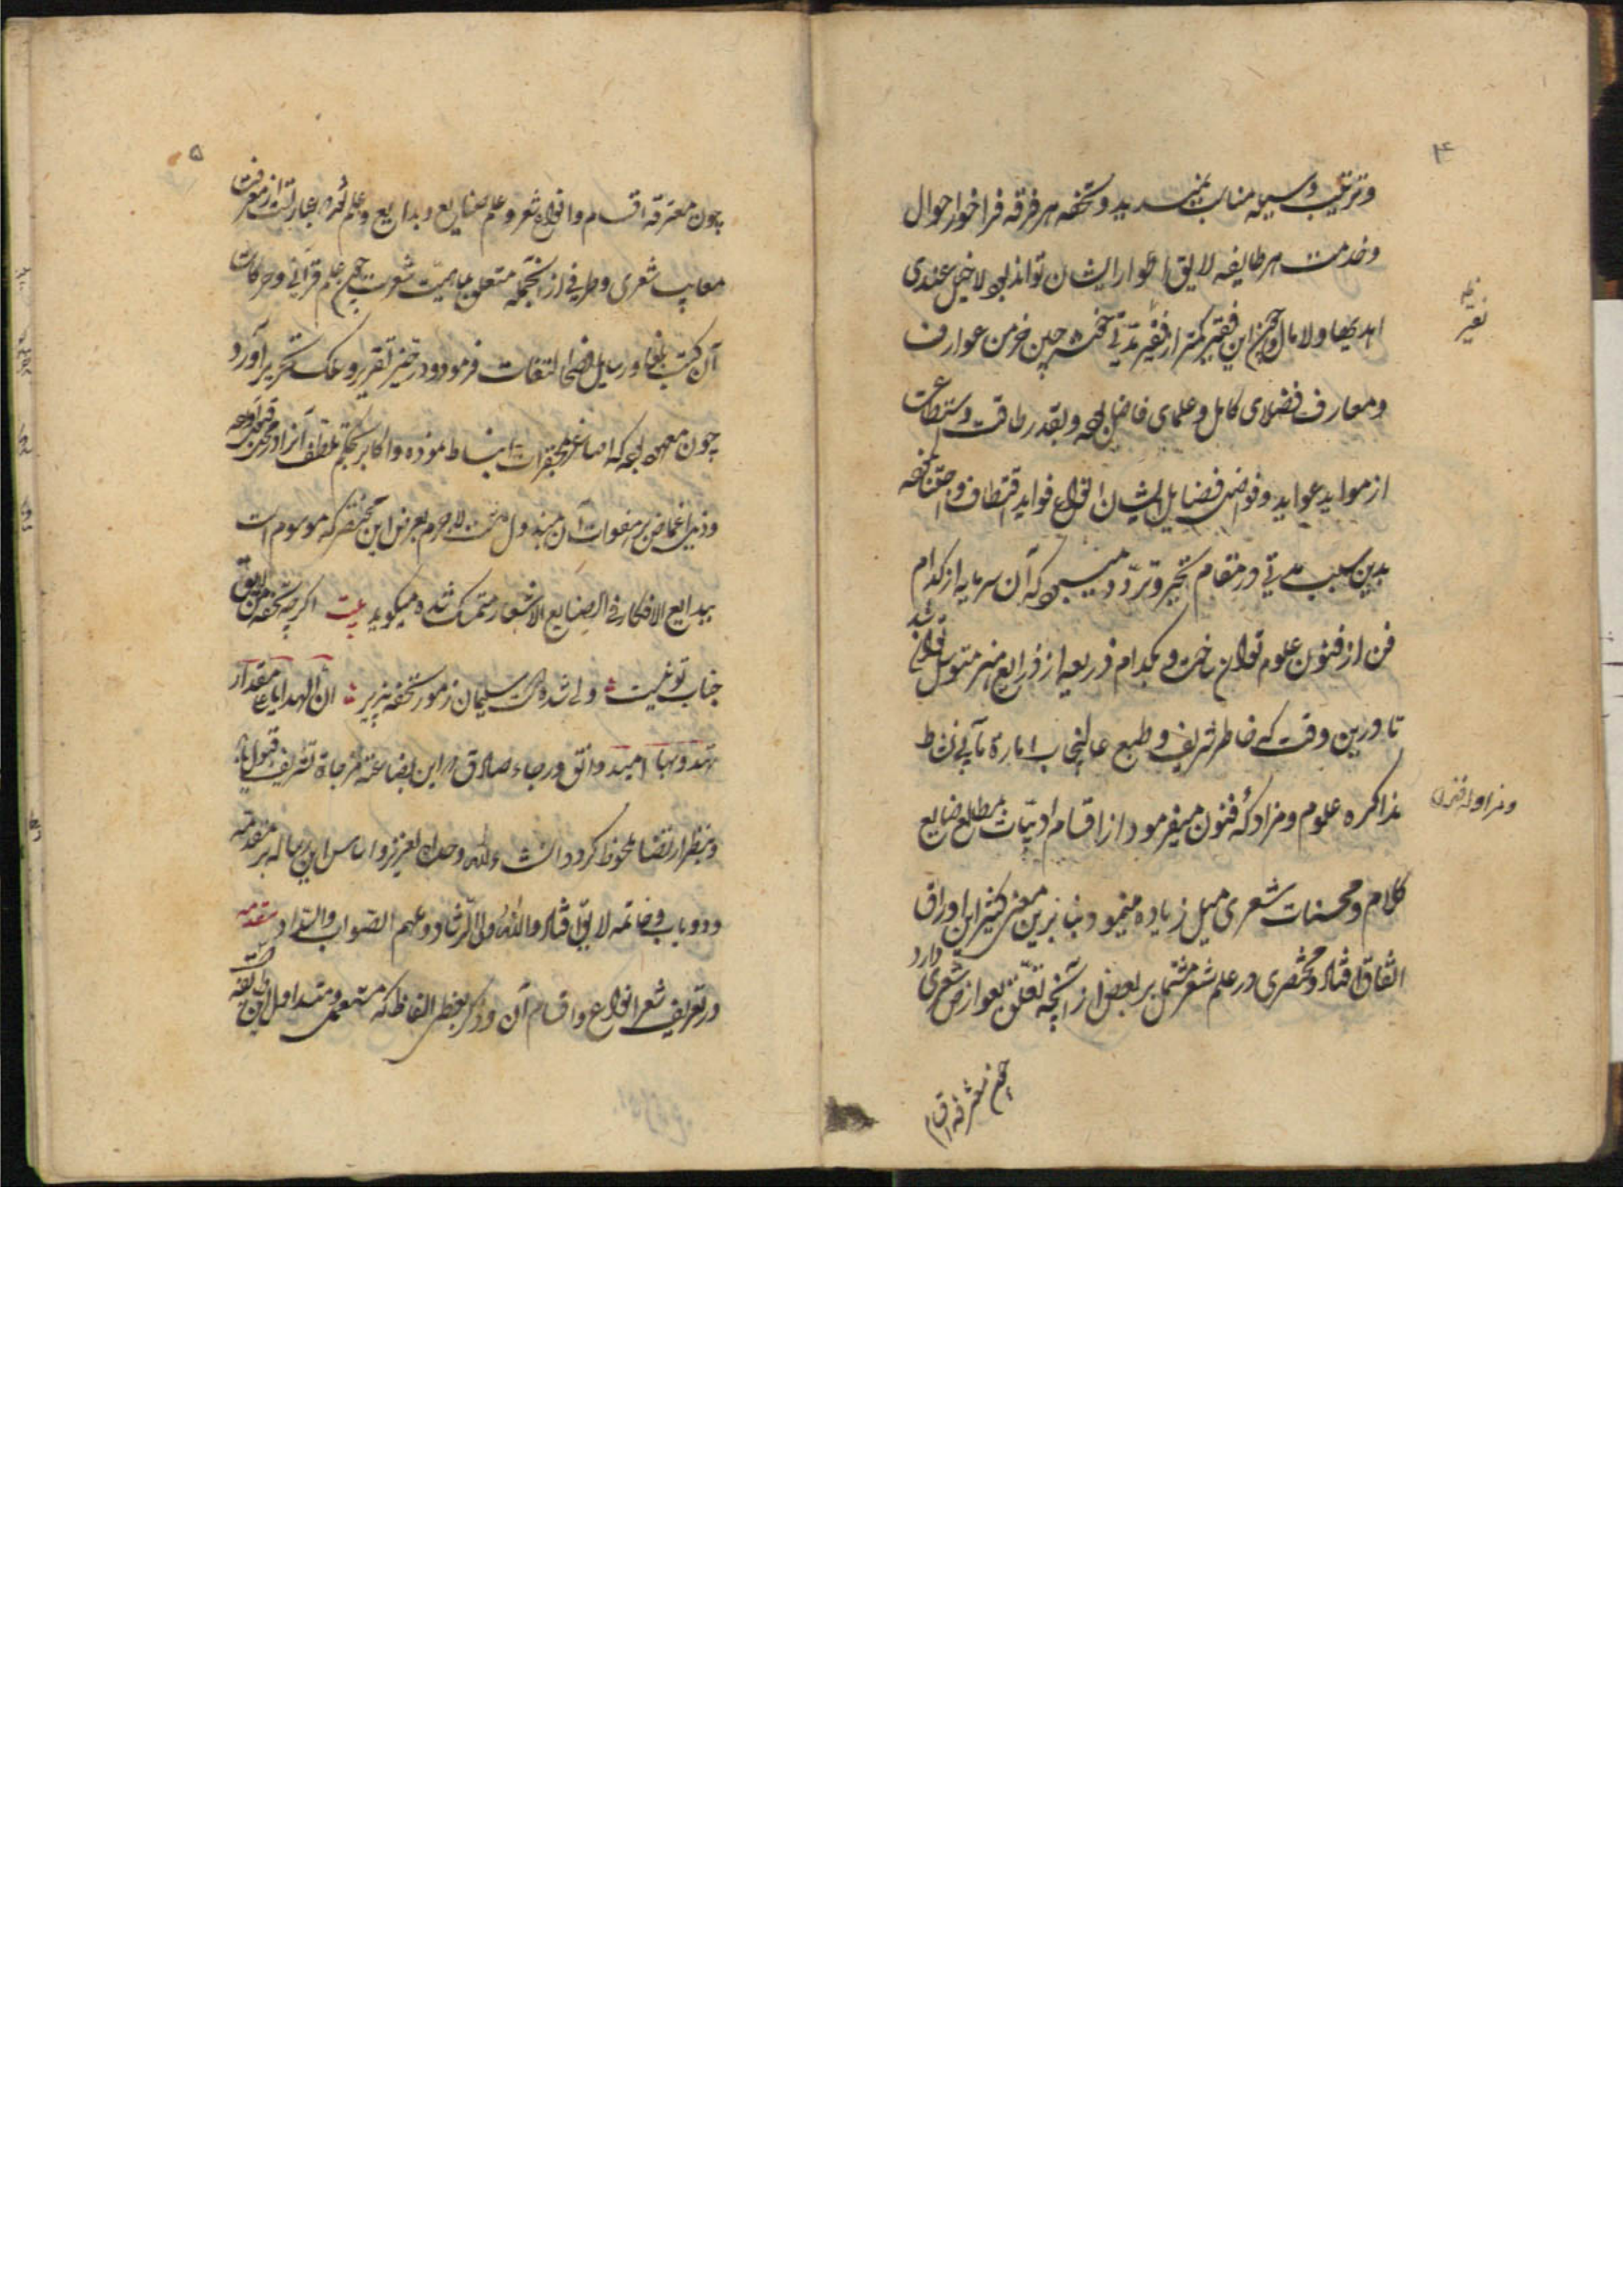 ۴
و ترتیب وسیله مناسب نمیرسد بدو تحفه هر فرقه فراخور احوال
و خدمت هر طایفه لایق اطوار ایشان تواند بود لا خیل عندی
اهدیها و لا مال و چون این فقیر کمتر از نقیر مدتی خوشه چین خرمن عوارف
نقیر
و معارف فضلای کامل و علمای فاضل بوده و بقدر طاقت و استطاعت
از مواید عواید و فواضل فضایل ایشان انواع فواید اقتطاف و اجتنا نموده
بدین سبب مدتی در مقام تحیر و تردد میبود که آن سرمایه از کدام
فن از فنون علوم توان ساخت و بکدام ذریعه از ذرایع هنر متوسل توان شد
تا درین وقت که خاطر شریف و طبع عالیجناب امارت مآبی نشاط
بمذاکره علوم و مزاوله فنون میفرمود از اقسام ادبیات بمطالع صنایع
و مزاوله فنون
کلام و محسنات شعری میل زیاده مینمود بنا برین معنی کثیر این اوراق
اتفاق افتاد و مختصری در علم شعر مشتمل بر بعضی از آنچه تعلق بعوارض شعری دارد
چون معرفة اقسام
۵
چون معرفة اقسام و انواع شعر و علم صنایع و بدایع و علم نقد که عبارتست از معرفت
معایب شعری و طرفی از آنچه متعلق بماهیت شعرست چون علم قوافی و حرکات
آن کتب بلغا و رسایل فصحا التقات فرموده در حیز تقریر و سلک تحریر آورد
چون معهود بوده که اصاغر بمحقرات انبساط نموده و اکابر بحکم تلطف آنرا در محل قبول آورده
و ذیل اغماض بر هفوات آن مبذول داشت لاجرم بعرض این مختصر که موسوم است
ببدایع الافکار فی صنایع الاشعار متمسک شده میگوید بیت اگرچه تحفه من لایق
جناب تو نیست ولی شده است سلیمان ز مور تحفه پذیر ان الهدایا علی مقدار
مهدیها امید واثق و رجاء صادق که این بضاعة مزجاة تشریف قبول یابد
و بنظر ارتضا ملحوظ گردد انشاء الله وحده العزیز و اساس این رساله بر مقدمه
و دو باب و خاتمه لایق افتاد والله ولی الرشاد و ملهم الصواب والسداد مقدمه
در تعریف شعر و انواع و اقسام آن و ذکر بعضی الفاظ که مستعمل و متداول این طایفه است